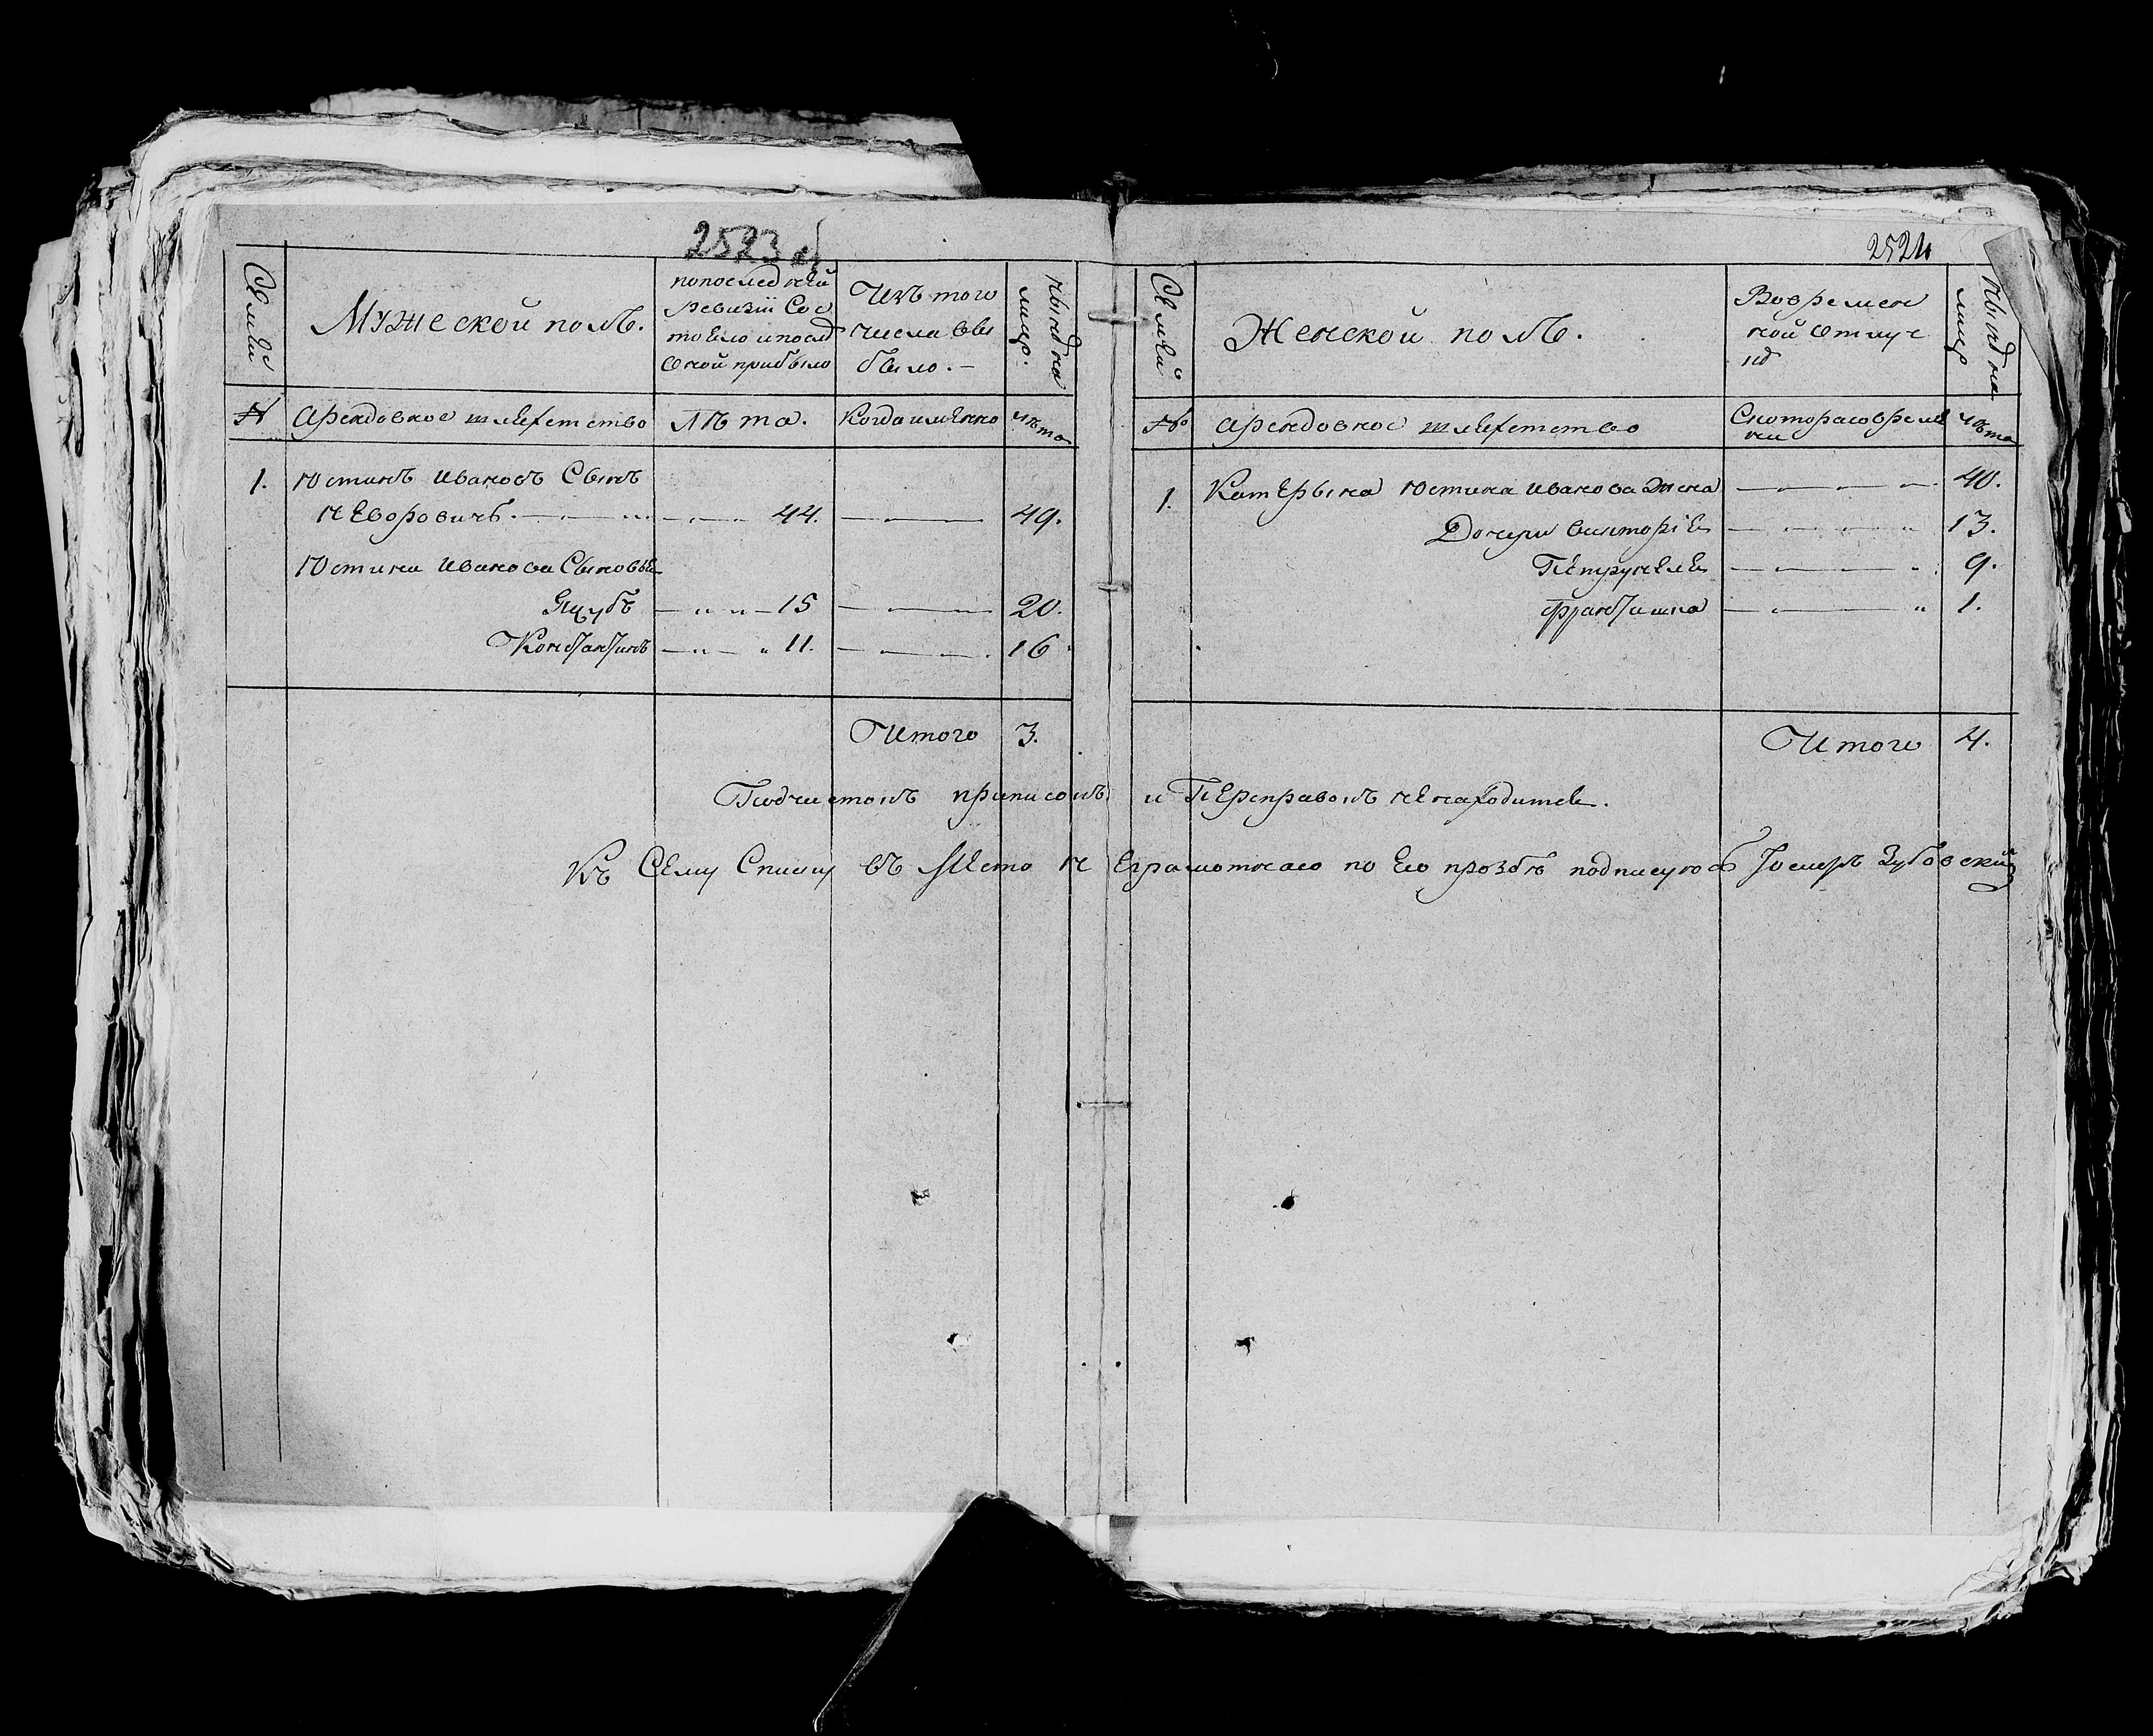 2523 об
Семьи
Мужеской полъ.
попоследней
ревизіи Сос
тояло ипослѣ
оной прибыло
Изъ того
числа вы
было. —
Ныидна
лицо.
№
арендовное шляхетство
лѣта.
Когда имянно
лѣта
1.
Юстинъ Ивановъ Сынъ
Неворовичъ. 44. 49.
Юстина Иванова Сыновья
Якубъ 15 20.
Константинъ 11. 16
Итого 3.
2524
Семьи
Женской полъ.
Вовремен
ной отлуч
ке
Ныидна
лицо
№
арендовное шляхетство
Скоторасовреме
ни
лѣта
1.
Катерына Юстина Иванова Жена 40.
Дочери викторія 13.
Петрунеля 9.
францишка 1.
Итого 4.
Подчистокъ приписокъ и Переправокъ ненаходится.
Къ Сему Списку въ Место Неграмотнаго по Его прозбѣ подписуюсь Іосифъ Зубовский